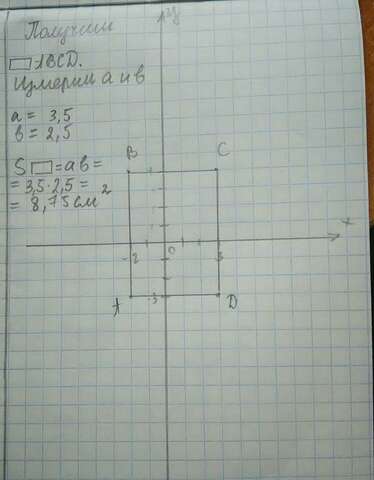 Получим
▭ ABCD.
Измерим a и b
a = 3,5
b = 2,5
S ▭ = ab =
= 3,5 · 2,5 =
= 8,75 см²
y
B C
x
-2 0 3
-3
A D